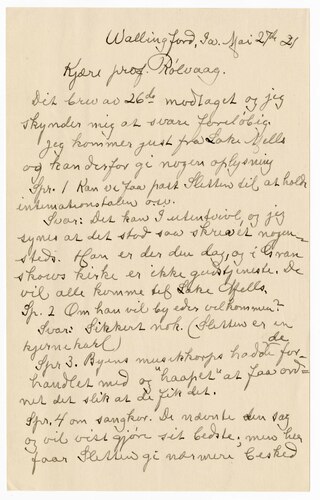 Wallingford, Ia. Mai 27th 21
Kjære prof. Rölvaag.
Dit brev av 26de modtaget og jeg
skynder mig at svare foreløbig.
Jeg kommer just fra Lake Mills
og kan derfor gi nogen oplysning
Spr. 1 Kan vi faa past. Sletten til at holde
Svar: Det kan I utentvivl og jeg
synes at det stod saa skrevet nogen-
steds. Han er der den dag og i
kirke er ikke gudstjeneste. De
vil alle komme til Lake Mills.
Sp. 2 Om han vil by eder velkommen?
Svar: Sikkert nok. (Sletten er en
kjernekarl)
Spr 3. Byens musikkorps hadde de for-
handlet med og "haapet" at faa ord-
net det slik at de fik det.
Spr. 4 om sangkor. De nævnte den sag
og vil vist gjøre sit bedste, men her
faar Sletten gi nærmere besked